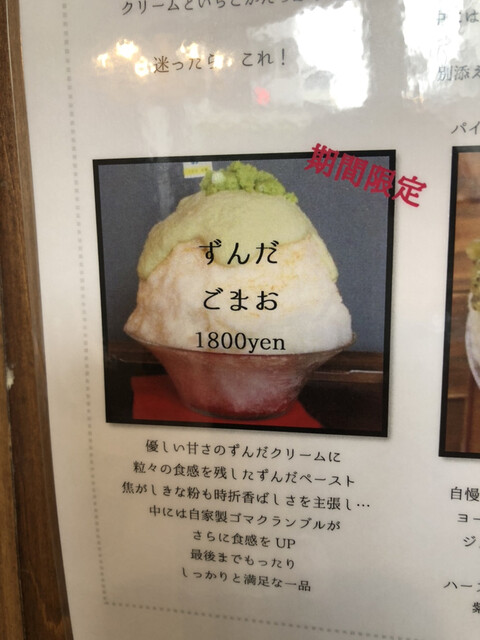 迷ったら これ！
別添え
パイ
期間限定
ずんだ
ごまお
1800yen
優しい甘さのずんだクリームに
粒々の食感を残したずんだペースト
焦がしきな粉も時折香ばしさを主張し…
中には自家製ゴマクランブルが
さらに食感をUP
最後までもったり
しっかりと満足な一品
自慢
ヨー
ジ
ハー